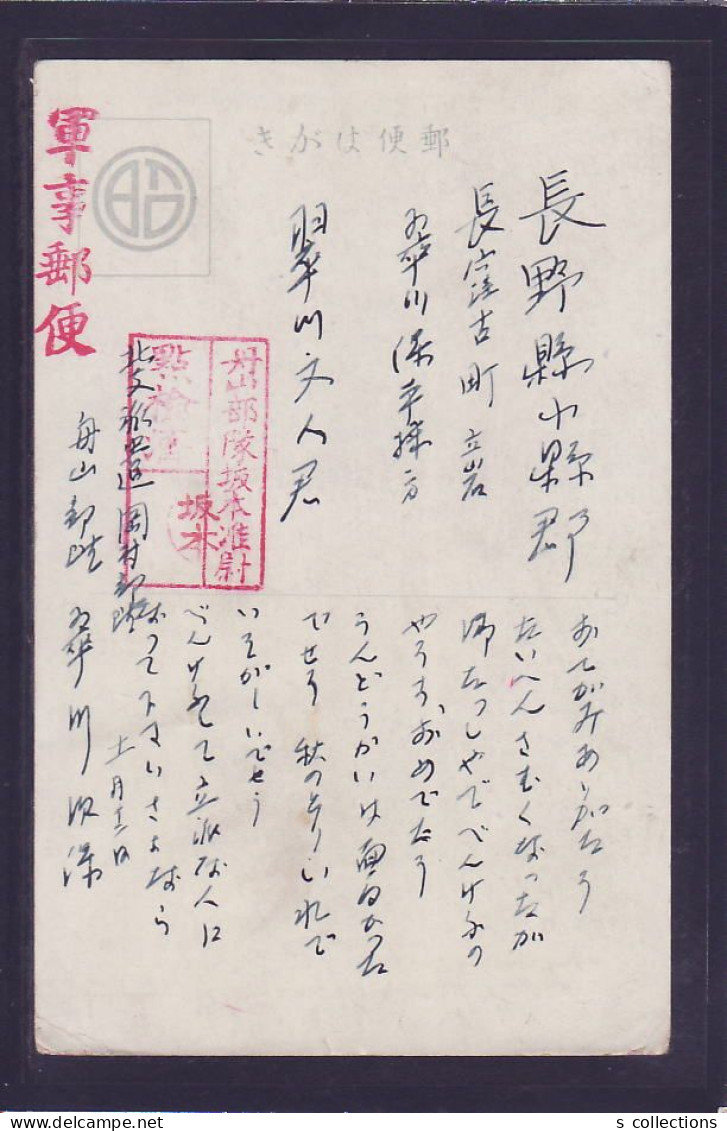 きがはゝ便郵
軍事郵便
長野縣小縣郡
長窪古町立岩
翠川文人君
舟山部隊坂本准尉
點檢濟
坂本
北支派遣岡村部隊
舟山部隊
おてがみありがたう
たいへんさむくなつたが
御たつしやでべんけふの
やうす、おめでたう
うんどうかいは面白かつた
でせう 秋のとりいれで
いそがしいでせう
べんけふして立派な人に
なつて下さいさよなら
十一月十二日
s collections